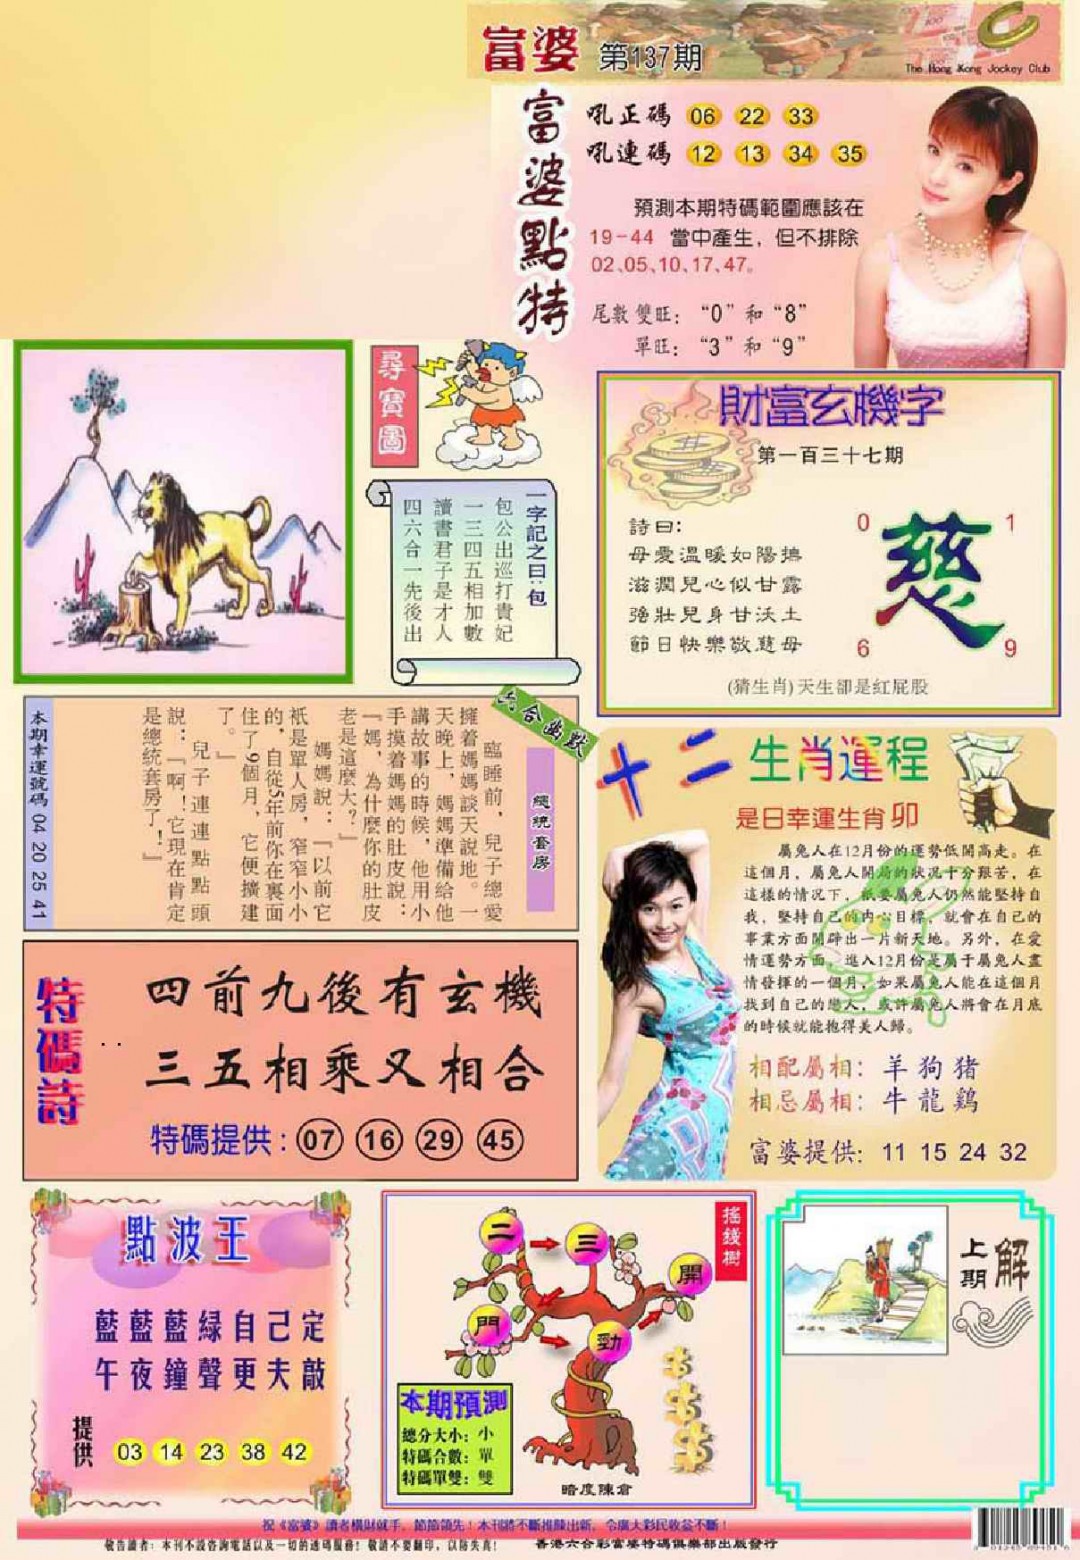 富婆 第137期
The Hong Kong Jockey Club
富婆點特
吼正碼 06 22 33
吼連碼 12 13 34 35
預測本期特碼範圍應該在
19-44 當中產生，但不排除
02、05、10、17、47。
尾數雙旺：“0”和“8”
單旺：“3”和“9”
尋寶圖
一字記之曰：包
包公出巡打貴妃
一三四五相加數
讀書君子是才人
四六合一先後出
財富玄機字
第一百三十七期
詩曰：
母愛溫暖如陽
滋潤兒心似甘露
強壯兒身甘沃土
節日快樂敬慈母
0 1
慈
6 9
(猜生肖)天生卻是紅屁股
六合幽默
總統套房
臨睡前，兒子總愛
擁着媽媽談天說地。一
天晚上，媽媽準備給他
講故事的時候，他用小
手摸着媽媽的肚皮說：
『媽，為什麽你的肚皮
老是這麼大？』
媽媽說：『以前它
衹是單人房，窄窄小小
的，自從5年前你在裏面
住了9個月，它便擴建
了。』
兒子連連點點頭
說：『啊！它現在肯定
是總統套房了！』
本期幸運號碼 04 20 25 41
十二生肖運程
是日幸運生肖 卯
屬兔人在12月份的運勢低開高走。在
這個月，屬兔人開局的狀况十分艱苦，在
這樣的情况下，衹要屬兔人仍然能堅持自
我，堅持自己的内心目標，就會在自己的
事業方面開辟出一片新天地。另外，在愛
情運勢方面，進入12月份是屬于屬兔人盡
情發揮的一個月，如果屬兔人能在這個月
找到自己的戀人，或許屬兔人將會在月底
的時候就能抱得美人歸。
相配屬相：羊 狗 猪
相忌屬相：牛 龍 鷄
富婆提供：11 15 24 32
特碼詩
四前九後有玄機
三五相乘又相合
特碼提供：07 16 29 45
點波王
藍藍藍緑自己定
午夜鐘聲更夫敲
提供 03 14 23 38 42
搖錢樹
二 三
開
門
勁
本期預測
總分大小：小
特碼合數：單
特碼單雙：雙
暗度陳倉
上期
解
祝《富婆》讀者横財就手，節節領先！本刊將不斷推陳出新，令廣大彩民收益不斷！
敬告讀者：本刊不設咨詢電話以及一切的透碼服務！敬請不要翻印，以防失真！ 香港六合彩富婆特碼俱樂部出版發行